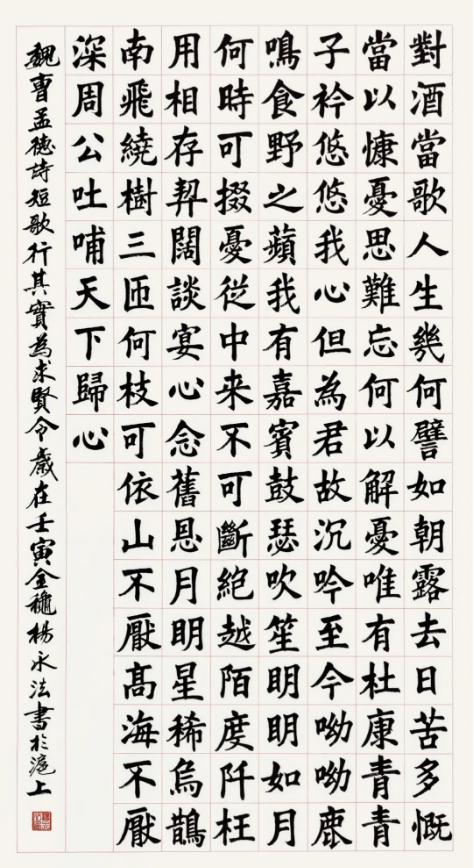 對酒當歌人生幾何譬如朝露去日苦多慨
當以慷憂思難忘何以解憂唯有杜康青青
子衿悠悠我心但為君故沉吟至今呦呦鹿
鳴食野之蘋我有嘉賓鼓瑟吹笙明明如月
何時可掇憂從中来不可斷絕越陌度阡枉
用相存契闊談宴心念舊恩月明星稀烏鵲
南飛繞樹三匝何枝可依山不厭高海不厭
深周公吐哺天下歸心
魏曹孟德詩短歌行其實為求賢令歲在壬寅金龝楊永法書於滬上